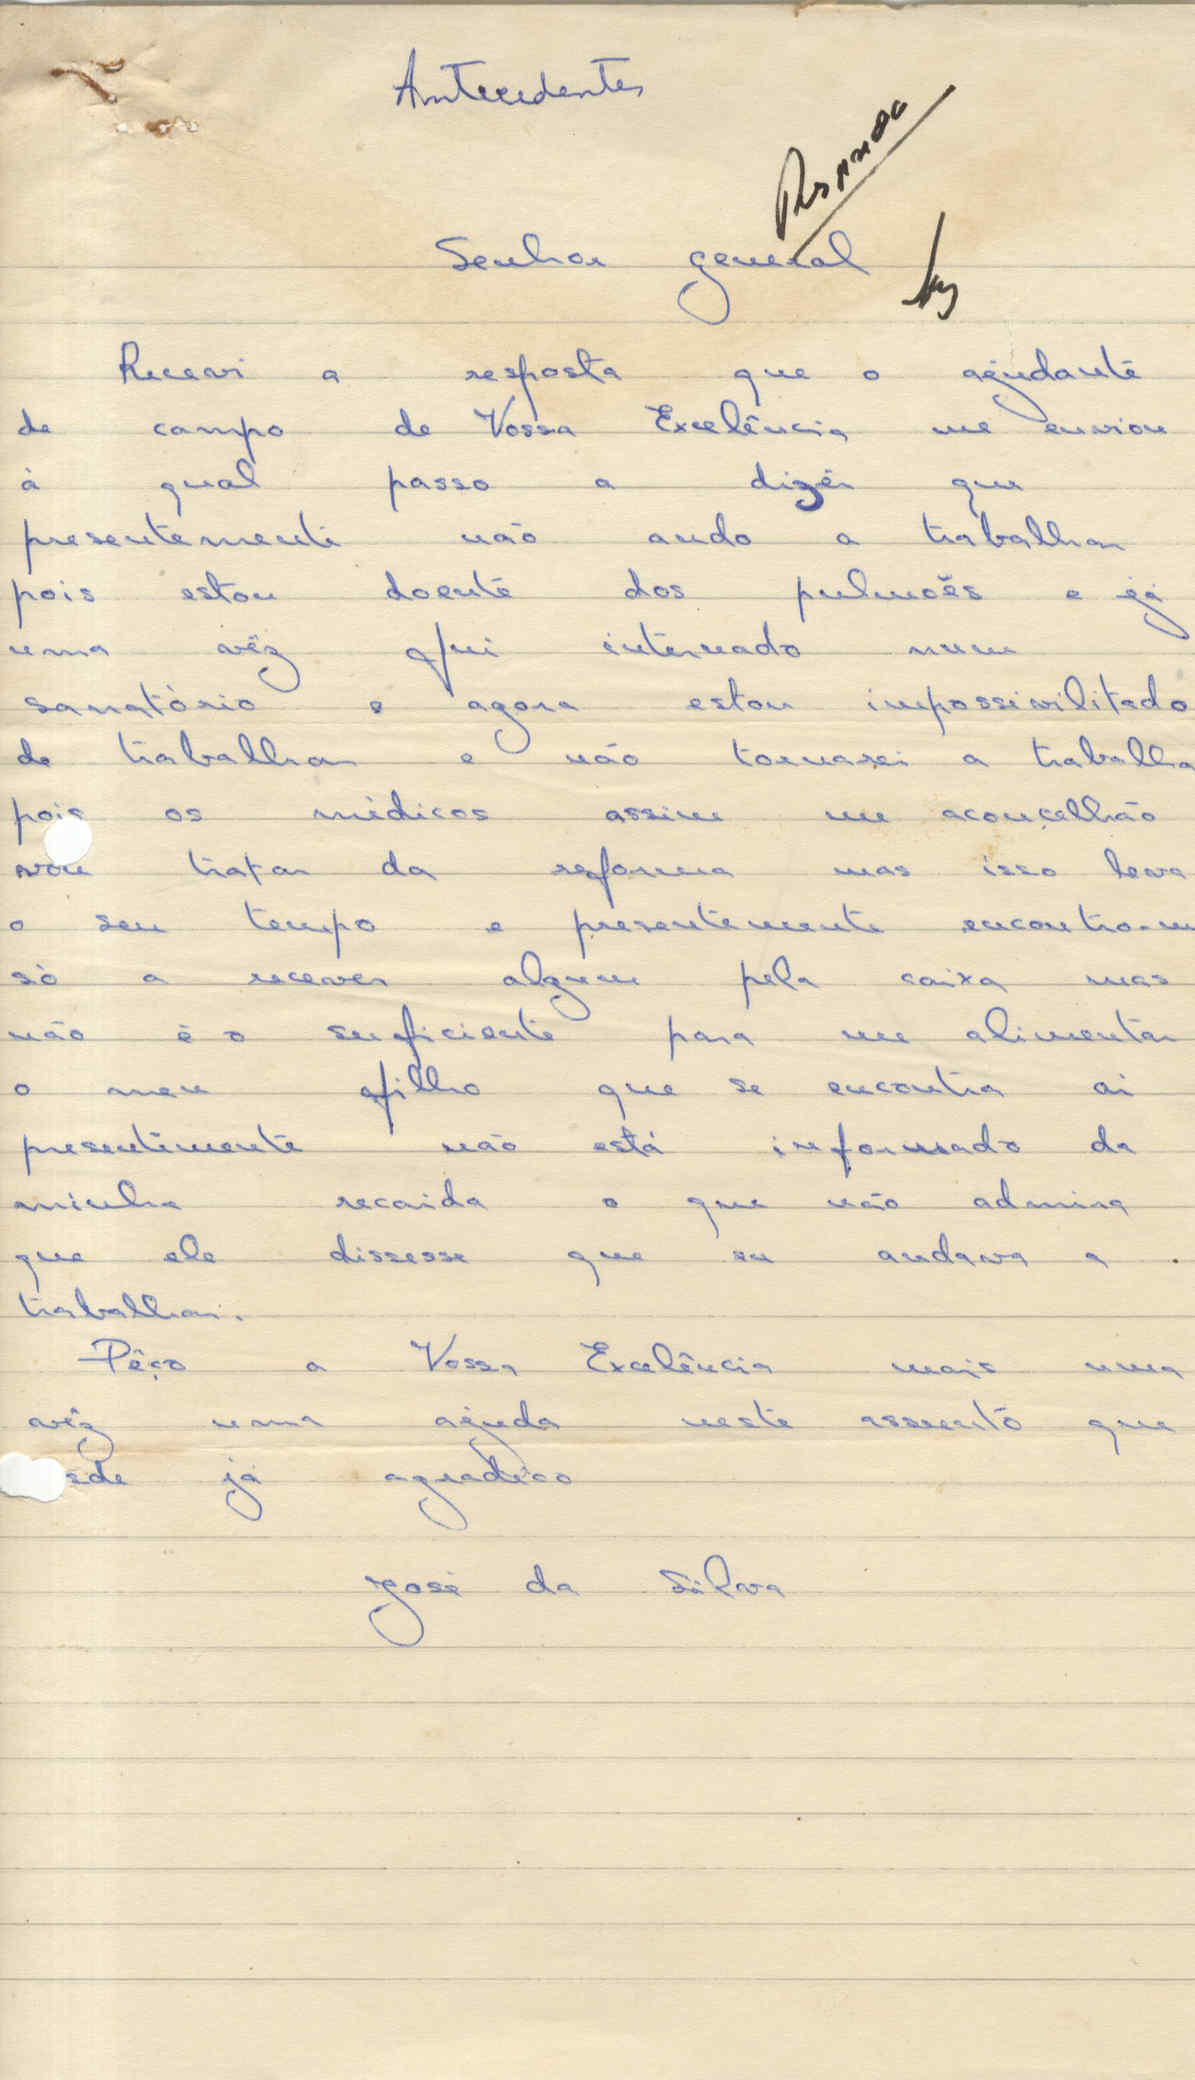 Antecedentes
Senhor general
Recevi a resposta que o ajudante
de campo de Vossa Excelência me enviou
á qual passo a dizêr que
presentemente não ando a trabalhar
pois estou doente dos pulmões e já
uma vêz fui internado num
sanatório e agora estou impossivilitado
de trabalhar e não tornarei a trabalha
pois os médicos assim me aconçelhão
vou tratar da reforma mas isso leva
o seu tempo e presentemente encontro-m
só a recever algum pela caixa mas
não é o suficiente para me alimentar
o meu filho que se encontra ai
presentimente não está informado da
minha recaida o que não admira
que ele dissesse que eu andava a
trabalhar.
Pêço a Vossa Excelência mais uma
vêz uma ajuda neste assunto que
sde já agradéço
José da Silva